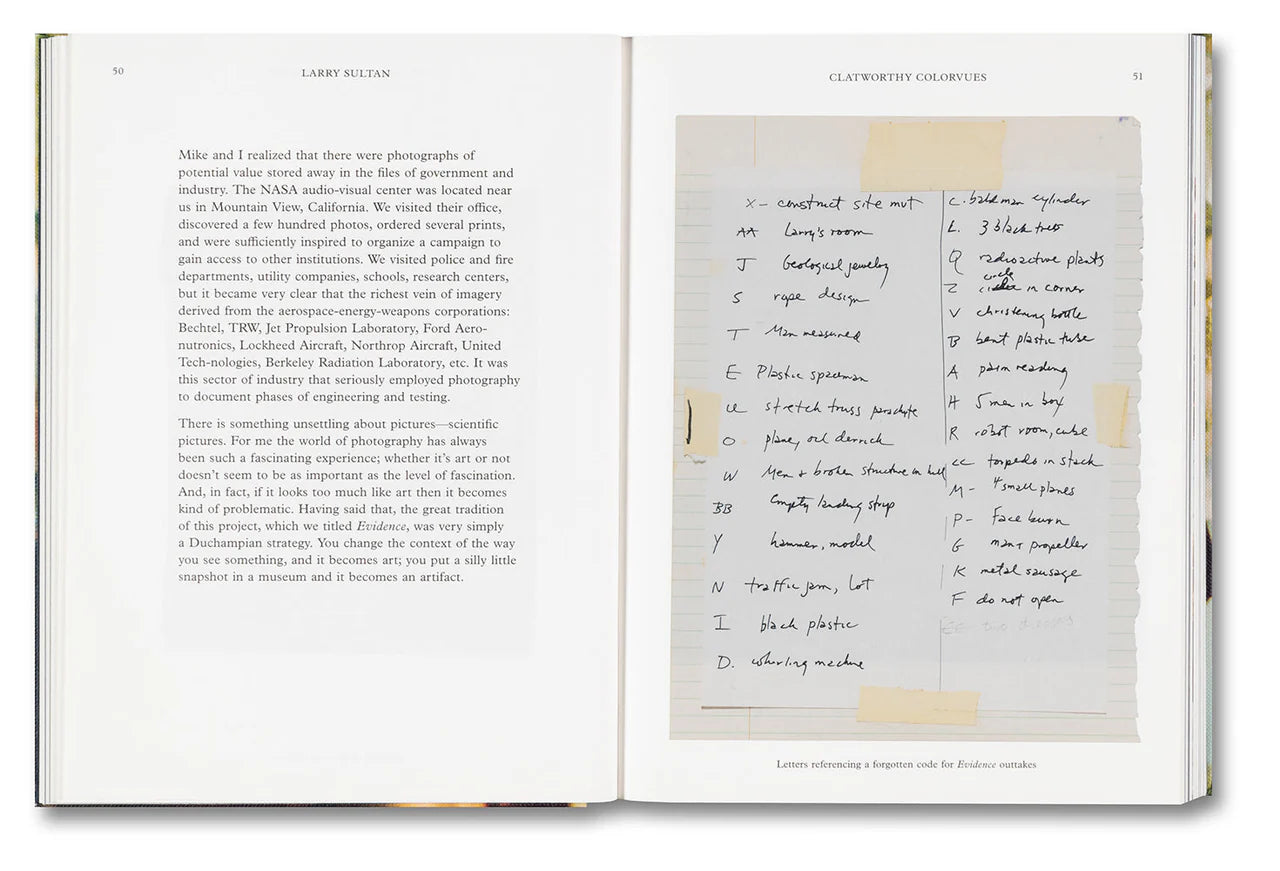 50
LARRY SULTAN
Mike and I realized that there were photographs of
potential value stored away in the files of government and
industry. The NASA audio-visual center was located near
us in Mountain View, California. We visited their office,
discovered a few hundred photos, ordered several prints,
and were sufficiently inspired to organize a campaign to
gain access to other institutions. We visited police and fire
departments, utility companies, schools, research centers,
but it became very clear that the richest vein of imagery
derived from the aerospace-energy-weapons corporations:
Bechtel, TRW, Jet Propulsion Laboratory, Ford Aero-
nutronics, Lockheed Aircraft, Northrop Aircraft, United
Tech-nologies, Berkeley Radiation Laboratory, etc. It was
this sector of industry that seriously employed photography
to document phases of engineering and testing.
There is something unsettling about pictures—scientific
pictures. For me the world of photography has always
been such a fascinating experience; whether it's art or not
doesn't seem to be as important as the level of fascination.
And, in fact, if it looks too much like art then it becomes
kind of problematic. Having said that, the great tradition
of this project, which we titled Evidence, was very simply
a Duchampian strategy. You change the context of the way
you see something, and it becomes art; you put a silly little
snapshot in a museum and it becomes an artifact.
CLATWORTHY COLORVUES
51
X – construct site mut
AA Larry's room
J Geological jewelry
S rope design
T Man measured
E Plastic spaceman
U stretch truss parachute
O plane, oil derrick
W Men & broken structure in
BB Empty landing strip
Y hammer, model
N traffic jam, lot
I black plastic
D. whirling machine
C. bald man cylinder
L. 3 black trees
Q radioactive plants
Z circle in corner
V christening bottle
B bent plastic tube
A palm reading
H 5 men in box
R robot room, cube
CC torpedo in stack
M – 4 small planes
P – Face burn
G man + propeller
K metal sausage
F do not open
EE two
Letters referencing a forgotten code for Evidence outtakes